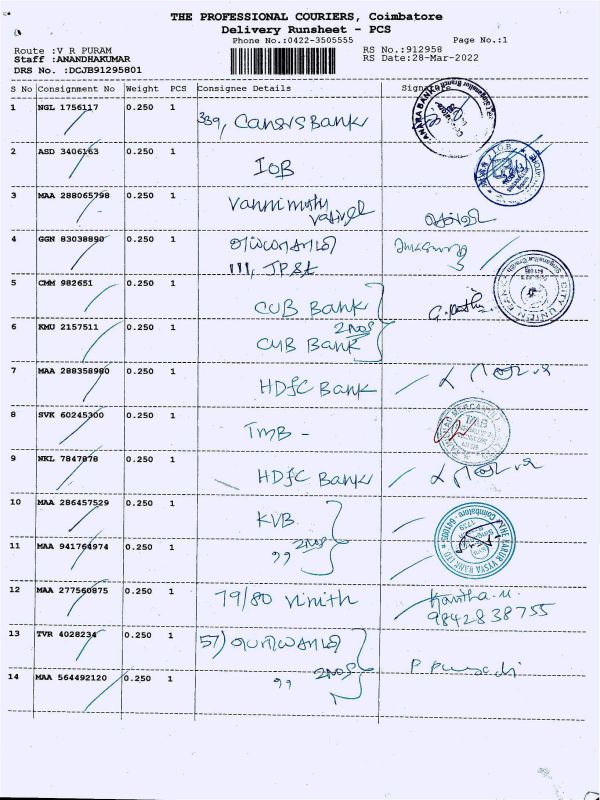 THE PROFESSIONAL COURIERS, Coimbatore
Delivery Runsheet - PCS
Phone No.:0422-3505555 Page No.:1
Route :V R PURAM RS No.:912958
Staff :ANANDHAKUMAR RS Date:28-Mar-2022
DRS No. :DCJB91295801
S No Consignment No Weight PCS Consignee Details Signature
1 NGL 1756117 0.250 1 339, Canara Bank
2 ASD 3406163 0.250 1 IOB
3 MAA 288065798 0.250 1 Vannimuthu
4 GGN 83038890 0.250 1
111, JP St
5 CMM 982651 0.250 1 CUB Bank
6 KMU 2157511 0.250 1 2Nos
CUB Bank
7 MAA 288358980 0.250 1 HDFC Bank
8 SVK 60245300 0.250 1 TMB -
9 NKL 7847878 0.250 1 HDFC Bank
10 MAA 286457529 0.250 1 KVB
11 MAA 941764974 0.250 1 ,, 2Nos
12 MAA 277560875 0.250 1 79/80 Vinith Kavitha.M.
9842838755
13 TVR 4028234 0.250 1 57)
14 MAA 564492120 0.250 1 ,, 2Nos
CANARA BANK
CITY UNION BANK
TMB
THE KARUR VYSYA BANK LTD
Coimbatore - 641005